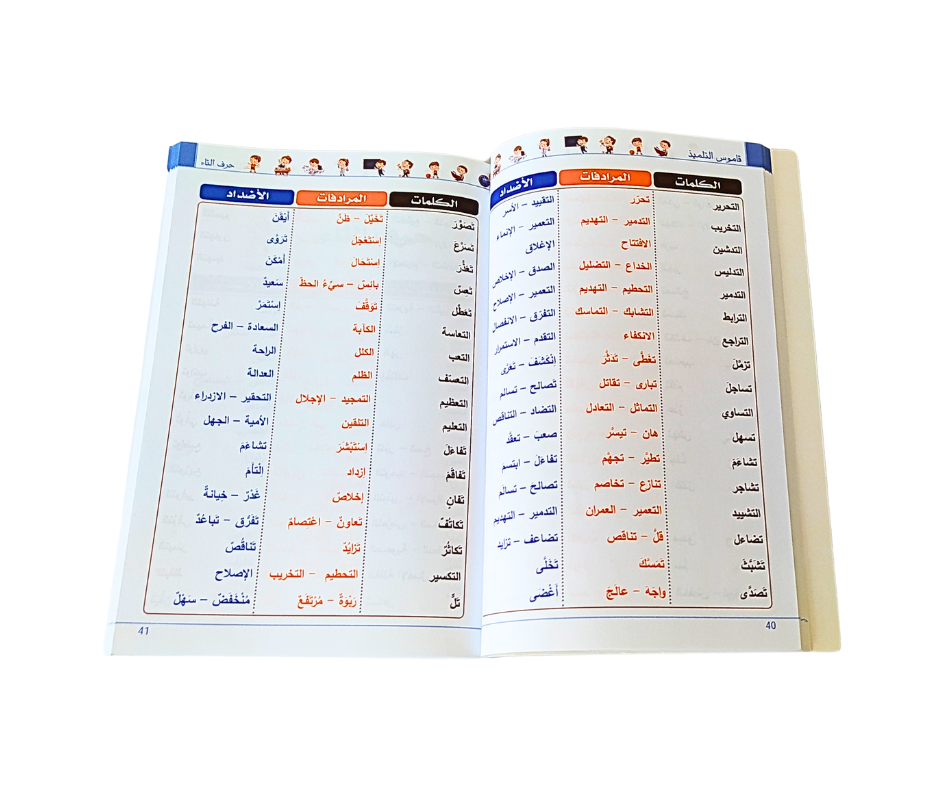 قاموس التلميذ
الكلمات المرادفات الأضداد
التحرير تحرّر التقييد – الأسر
التخريب التدمير – التهديم التعمير – الإنماء
التدشين الافتتاح الإغلاق
التدليس الخداع – التضليل الصدق – الإخلاص
التدمير التحطيم – التهديم التعمير – الإصلاح
الترابط التشابك – التماسك التفرّق – الانفصال
التراجع الانكفاء التقدم – الاستمرار
تزمّل تغطّى – تدثّر انْكَشَفَ – تعرّى
تساجل تبارى – تقاتل تصالح – تسالم
التساوي التماثل – التعادل التضاد – التناقص
تسهل هان – تيسّر صعب – تعقّد
تشاءم تطيّر – تجهّم تفاءل – ابتسم
تشاجر تنازع – تخاصم تصالح – تسالم
التشييد التعمير – العمران التدمير – التهديم
تضاءل قلّ – تناقص تضاعف – تزايد
تَشَبَّثَ تَمَسَّكَ تَخَلَّى
تَصَدَّى واجَهَ – عالَجَ أَغْضَى
40
حرف التاء
الكلمات المرادفات الأضداد
تَصَوَّرَ تَخَيَّلَ – ظَنَّ أَيْقَنَ
تَسَرَّعَ إسْتَعْجَلَ تَرَوَّى
تَعَذَّرَ إسْتَحَالَ أَمْكَنَ
تَعِسٌ بائسٌ – سيّءُ الحظّ سَعيدٌ
تَعَطَّلَ تَوَقَّفَ إسْتَمَرَّ
التعاسة الكآبة السعادة – الفرح
التعب الكلل الراحة
التعسّف الظلم العدالة
التعظيم التمجيد – الإجلال التحقير – الازدراء
التعليم التلقين الأمية – الجهل
تَفاءَلَ إسْتَبْشَرَ تشاءَمَ
تَفاقَمَ إزداد الْتَأَمَ
تَفانٍ إخلاصٌ غَدْرٌ – خِيانةٌ
تَكاتُفٌ تَعاونٌ – اعتصامٌ تَفَرُّق – تَباعُدٌ
تَكاثُرٌ تَزايُدٌ تَناقُصٌ
التكسير التحطيم – التخريب الإصلاح
تَلٌّ رَبْوَةٌ – مُرْتَفَعٌ مُنْخَفَضٌ – سَهْلٌ
41